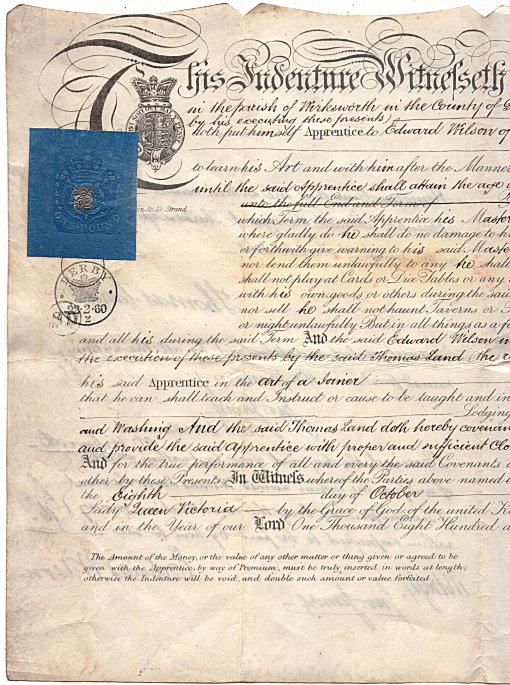 This Indenture Witnesseth
in the parish of Wirksworth in the County of
by his executing these presents)
doth put himself Apprentice to Edward Wilson of
to learn his Art and with him after the Manner
until the said Apprentice shall attain the age
unto the full End and Term of
St. Strand.
which Term the said Apprentice his Master
where gladly do he shall do no damage to
or forthwith give warning to his said Master
nor lend them unlawfully to any he shall
shall not play at Cards or Dice Tables or any
with his own goods or others during the said
nor sell he shall not haunt Taverns or
or night unlawfully But in all things as a
and all his during the said Term And the said Edward Wilson
the execution of these presents by the said Thomas Land
his said Apprentice in the art of a Joiner
that he can shall teach and Instruct or cause to be taught and
Lodging
and Washing And the said Thomas Land doth hereby
and provide the said Apprentice with proper and sufficient
And for the true performance of all and every the said Covenants
other by these Presents In Witness whereof the Parties above named
the Eighth day of October
Lady Queen Victoria by the Grace of God of the united
and in the Year of our Lord One Thousand Eight Hundred
The Amount of the Money, or the value of any other matter or thing given or agreed to be
given with the Apprentice, by way of Premium, must be truly inserted in words at length;
otherwise the Indenture will be void, and double such amount or value forfeited.
ONE POUND
DERBY
2·60
Z